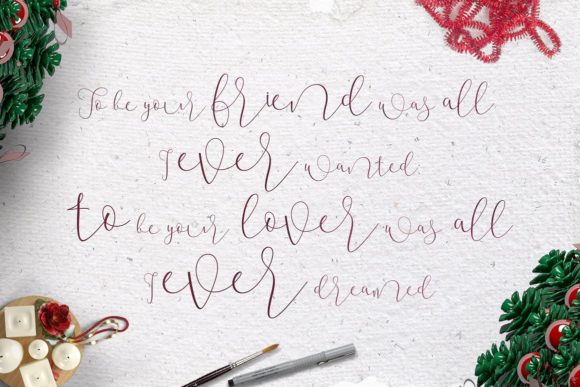 To be your friend was all
I ever wanted.
to be your lover was all
I ever dreamed